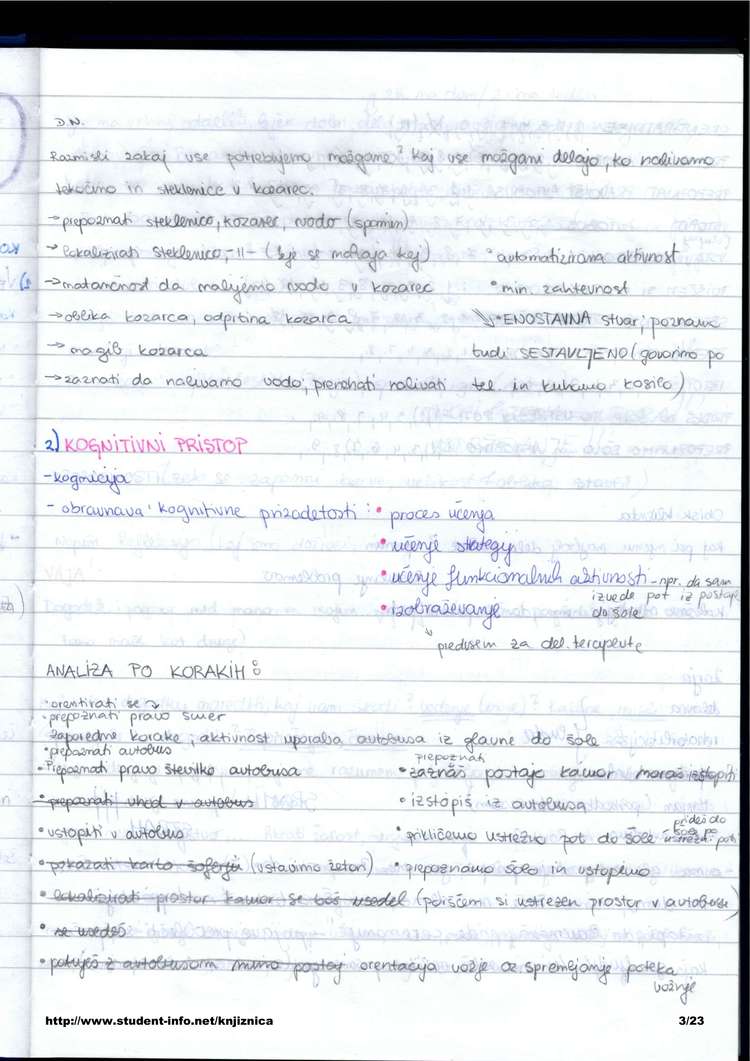 D.N.
Razmisli zakaj vse potrebujemo možgane? Kaj vse možgani delajo, ko nalivamo
tekočino in steklenice v kozarec.
→ prepoznati steklenico, kozarec, vodo (spomin)
→ lokalizirati steklenico, -11- (kje se nahaja kej) • avtomatizirana aktivnost
→ natančnost da nalijemo vodo v kozarec • min. zahtevnost
→ oblika kozarca, odprtina kozarca • ENOSTAVNA stvar; poznamo
→ nagib kozarca tudi SESTAVLJENO (govorimo po
→ zaznati da nalivamo vodo; prenehati nalivati tel. in kuhamo kosilo)
2) KOGNITIVNI PRISTOP
- kognicija
- obravnava kognitivne prizadetosti: • proces učenja
• učenje strategij
• učenje funkcionalnih aktivnosti - npr. da sam
izvede pot iz postaje
do šole
• izobraževanje
↓
predvsem za del. terapevte
ANALIZA PO KORAKIH:
• orentirati se
• prepoznati pravo smer
zaporedne korake; aktivnost uporaba avtobusa iz glavne do šole
• prepoznati avtobus
• Prepoznati pravo številko avtobusa
prepoznati
• zaznaš postajo kamor moraš izstopiti
• prepoznati vhod v avtobus • izstopiš iz avtobusa
• vstopiti v avtobus • prikličemo ustrezno pot do šole
prideš do šole po ustrezni poti
• pokazati karto šoferju (vstavimo žeton) • prepoznamo šolo in vstopimo
• lokalizirati prostor kamor se boš vsedel (poiščem si ustrezen prostor v avtobuse)
• se vsedeš
• potuješ z avtobusom mimo postaj orentacija vožje oz. spremljanje poteka
vožnje
http://www.student-info.net/knjiznica 3/23